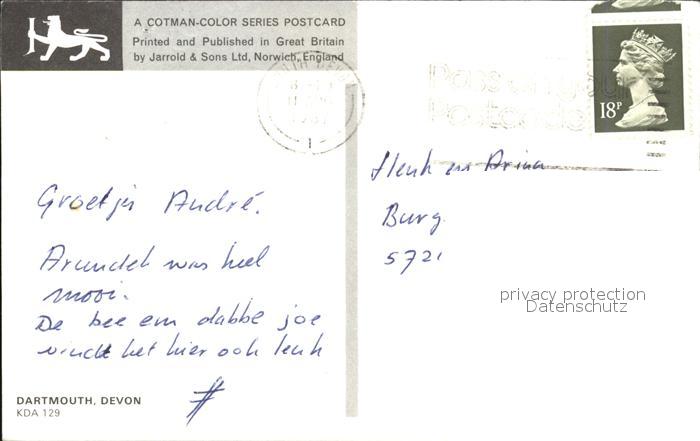 A COTMAN-COLOR SERIES POSTCARD
Printed and Published in Great Britain
by Jarrold & Sons Ltd, Norwich, England
Pass on your
Postcode
18P
Henk en Arina
Burg.
5721
privacy protection
Datenschutz
Groetjes André.
Arundel was heel
mooi.
De bee em dabbe joe
vindt het hier ook leuk
DARTMOUTH, DEVON
KDA 129